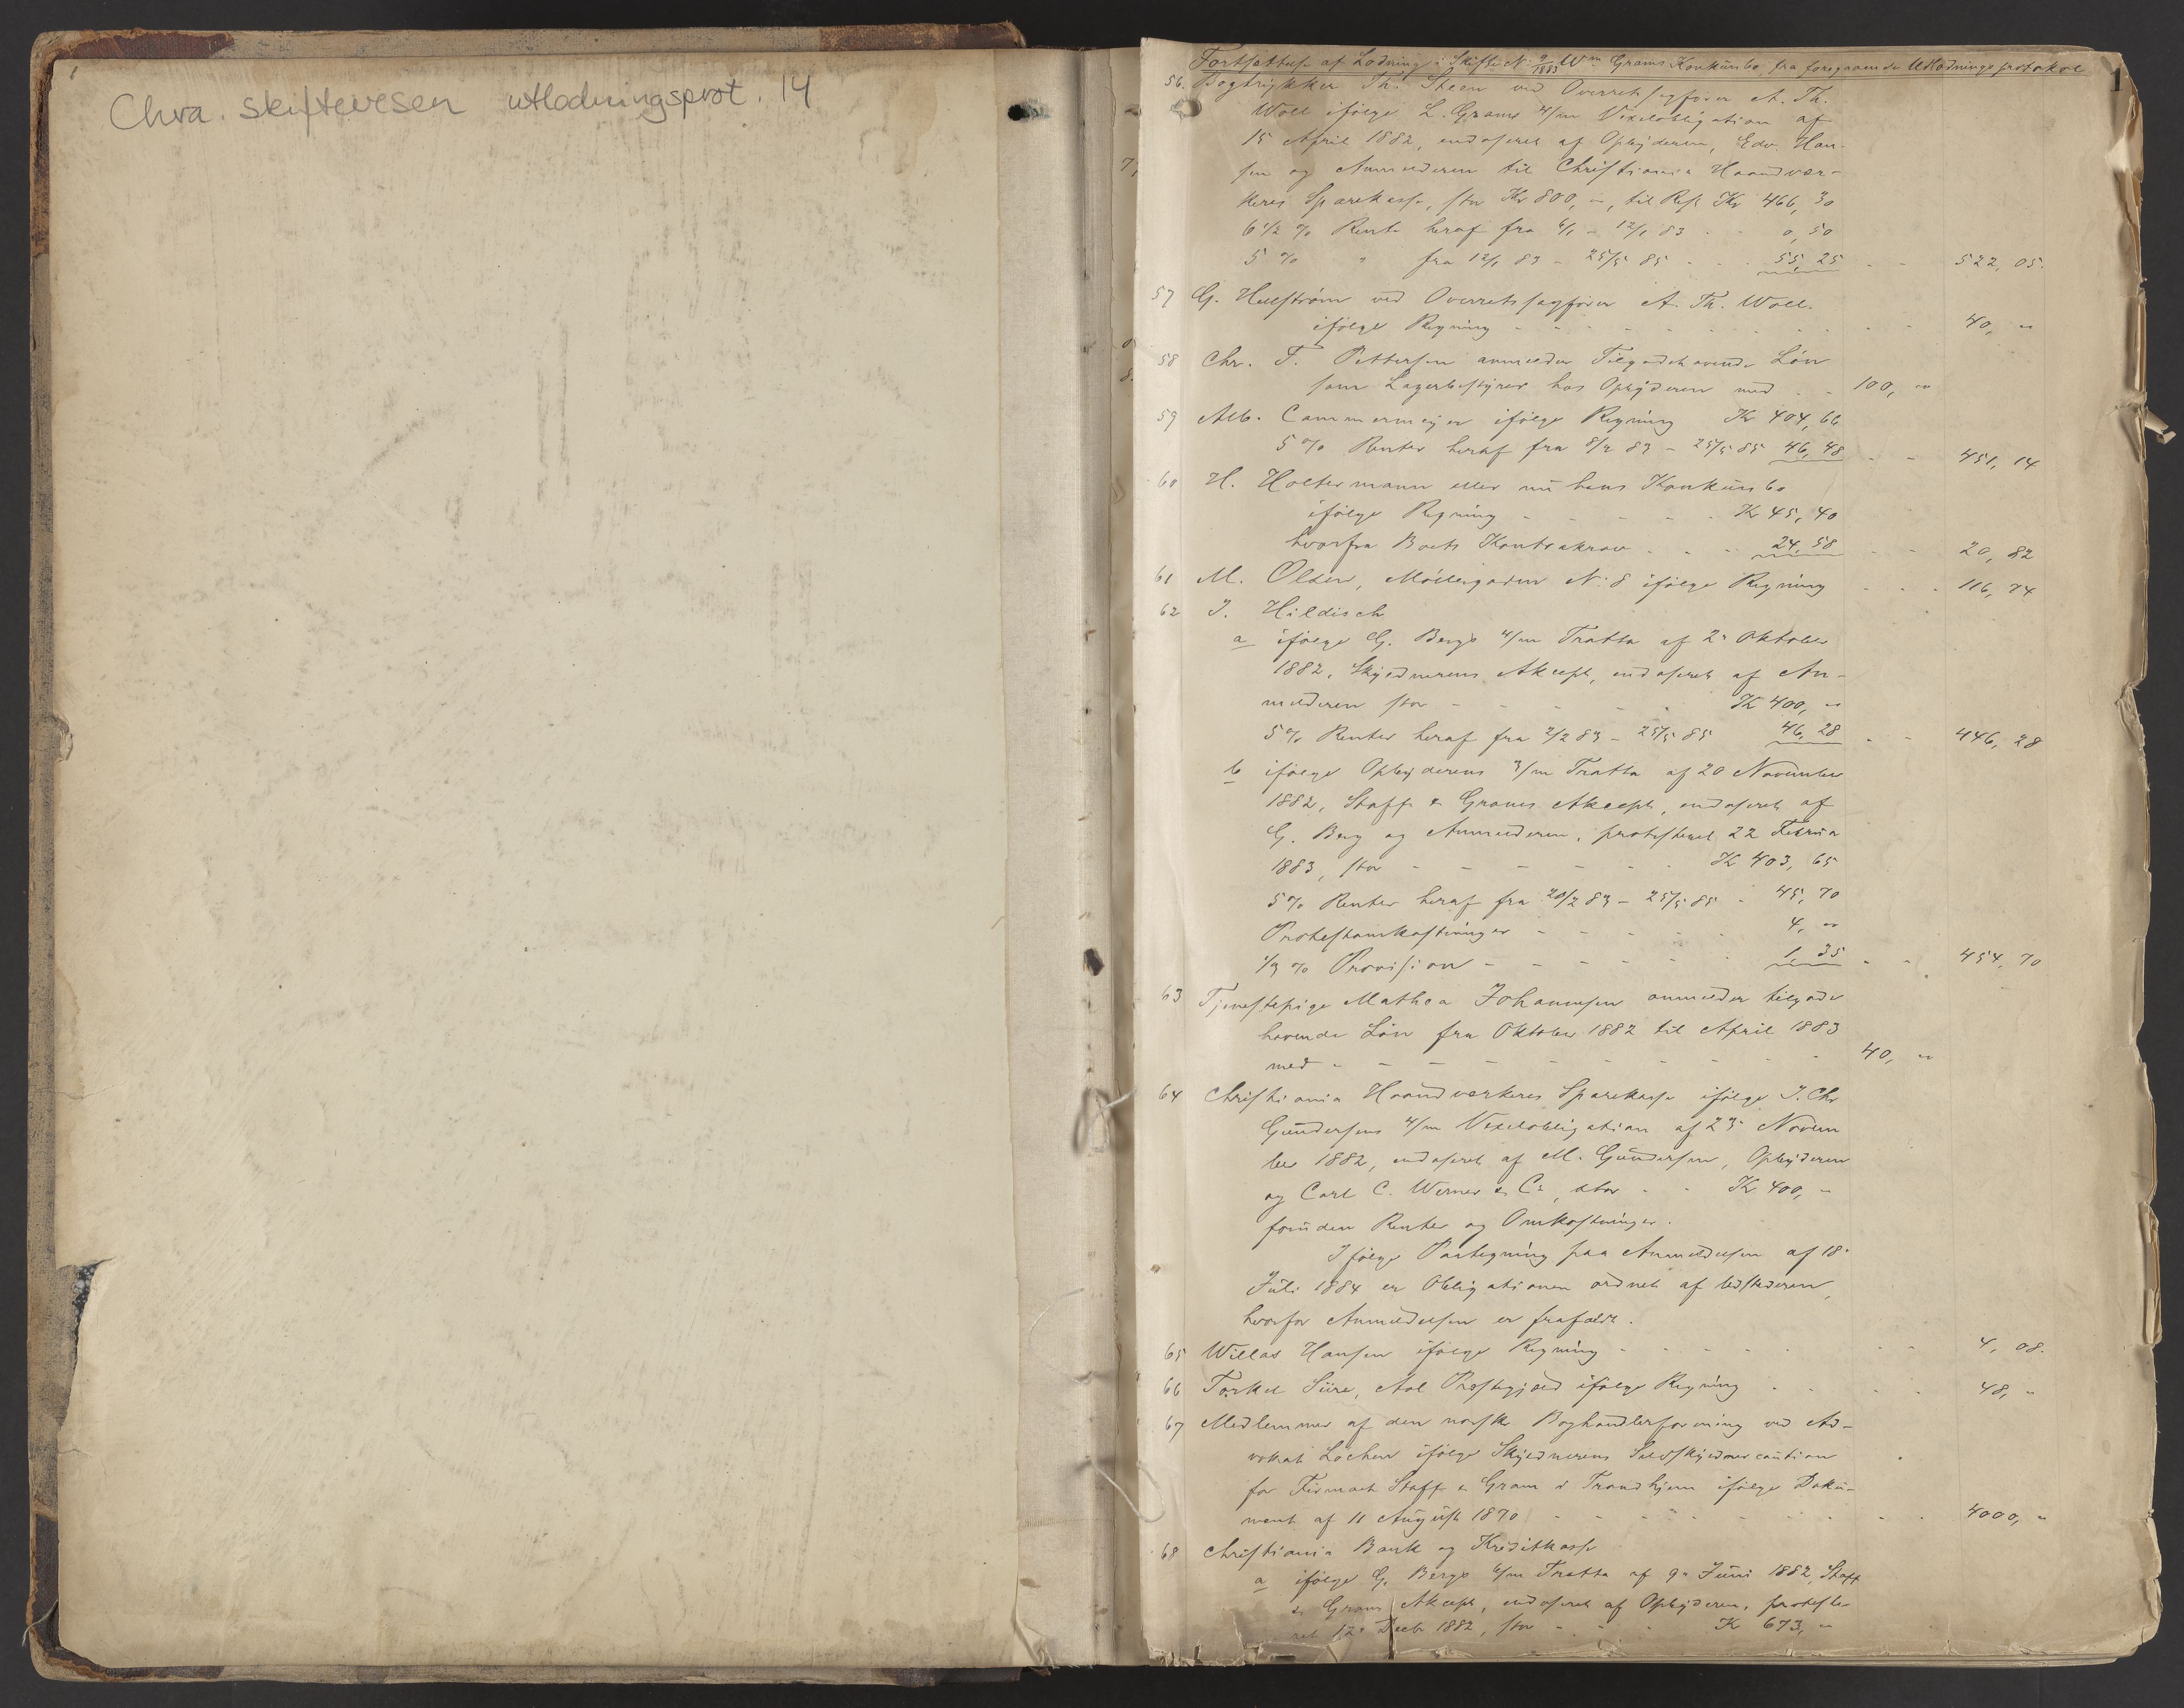 Chra. skiftevesen utlodningsprot. 14
1
Fortsættelse af Lodning i Skifte N: 9/1883 Wm Grams Konkursbo fra foregaaende Udlodningsprotokol
56. Bogtrykker Th. Steen ved Overretssagfører A. Th.
Woll ifølge L. Grams 4/m Vexelobligation af
15 April 1882, endosseret af Opbyderen, Edv. Han-
sen og Anmelderen til Christiania Haandvær-
keres Sparekasse, stor Kr 800, -, til Rest Kr 466, 30
6 1/2 % Rente heraf fra 6/1 - 12/1 83 - 0, 50
5 % " fra 12/1 83 - 25/5 85 - - 55, 25 - - 522, 05.
57 G. Hellstrøm ved Overretssagfører A. Th. Woll
ifølge Regning - - - - 40, "
58 Chr. F. Pettersen anmelder Tilgodehavende Løn
som Lagerbestyrer hos Opbyderen med - - 100, "
59 Alb. Cammermeyer ifølge Regning Kr 404, 66
5 % Renter heraf fra 8/2 83 - 25/5 85 46, 48 - - 451, 14
60 H. Holtermann eller nu hans Konkursbo
ifølge Regning - - - - Kr 45, 40
hvorfra Boets Kontrakrav - - - 24, 58 - - 20, 82
61 M. Olsen, Møllergaden N: 8 ifølge Regning - - - 116, 74
62 J. Hildisch
a ifølge G. Bergs 4/m Tratta af 2" Oktober
1882, Skyldnerens Akcept, endosseret af An-
melderen stor - - - - Kr 400, "
5 % Renter heraf fra 2/2 83 - 25/5 85 46, 28 - - 446, 28
b ifølge Opbyderens 3/m Tratta af 20 November
1882, Staff & Grams Akcept, endosseret af
G. Berg og Anmelderen, protesteret 22 Februa
1883, stor - - - - - Kr 403, 65
5 % Renter heraf fra 20/2 83 - 25/5 85 - 45, 70
Protestomkostninger - - - - 4, "
1/3 % Provision - - - - - 1, 35 - - 454, 70
63 Tjenestepige Mathea Johannesen anmelder tilgode
havende Løn fra Oktober 1882 til April 1883
med - - - - - - - - 40, "
64 Christiania Haandværkeres Sparekasse ifølge J. Chr
Gundersens 4/m Vexelobligation af 23 Novem
ber 1882, endosseret af M. Gundersen, Opbyderen
og Carl C. Werner & Co, stor - - Kr 400, -
foruden Renter og Omkostninger.
Ifølge Paategning paa Anmeldelsen af 18.
Juli 1884 er Obligationen ordnet af Udstederen,
hvorfor Anmeldelsen er frafaldt.
65 Willas Hansen ifølge Regning - - - - 4, 08.
66 Torkel Siire, Aal Præstegjæld ifølge Regning - - - - 48, "
67 Medlemmer af den norske Boghandlerforening ved Ad-
vokat Løchen ifølge Skyldnerens Selvskyldnercaution
for Firmaet Staff & Gram i Trondhjem ifølge Doku-
ment af 11 August 1870 - - - - - 4000, "
68 Christiania Bank og Kreditkasse
a ifølge G. Bergs 6/m Tratta af 9" Juni 1882, Staff
& Grams Akcept, endosseret af Opbyderen, proteste-
ret 12" Decb 1882, stor - - - Kr 673, "